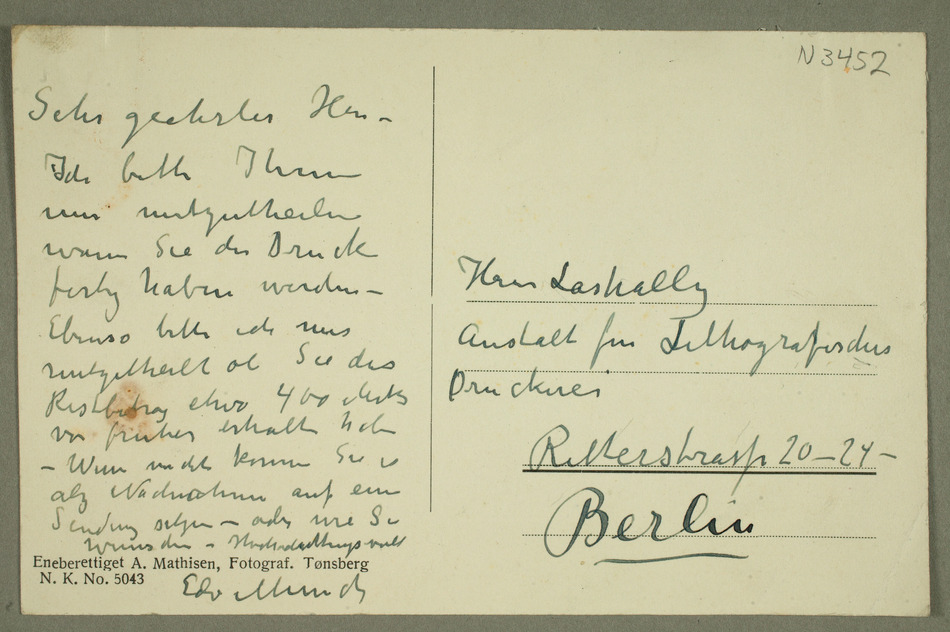 N3452
Sehr geehrter Herr –
Ich bitte Ihnen
mir mitzutheilen
wann Sie den Druck
fertig haben werden –
Ebenso bitte ich mir
mitgetheilt ob Sie das
Restbetrag etwa 400 Mark
von früher erhalten habe
– Wenn nicht können Sie es
als Nachnahme auf eine
Sendung setzen – oder wie Sie
wünschen – Hochachtungsvoll
Edv Munch
Eneberettiget A. Mathisen, Fotograf. Tønsberg
N. K. No. 5043
Herr Laskally
Anstalt für Lithografisches
Druckerei
Ritterstrasse 20–24–
Berlin